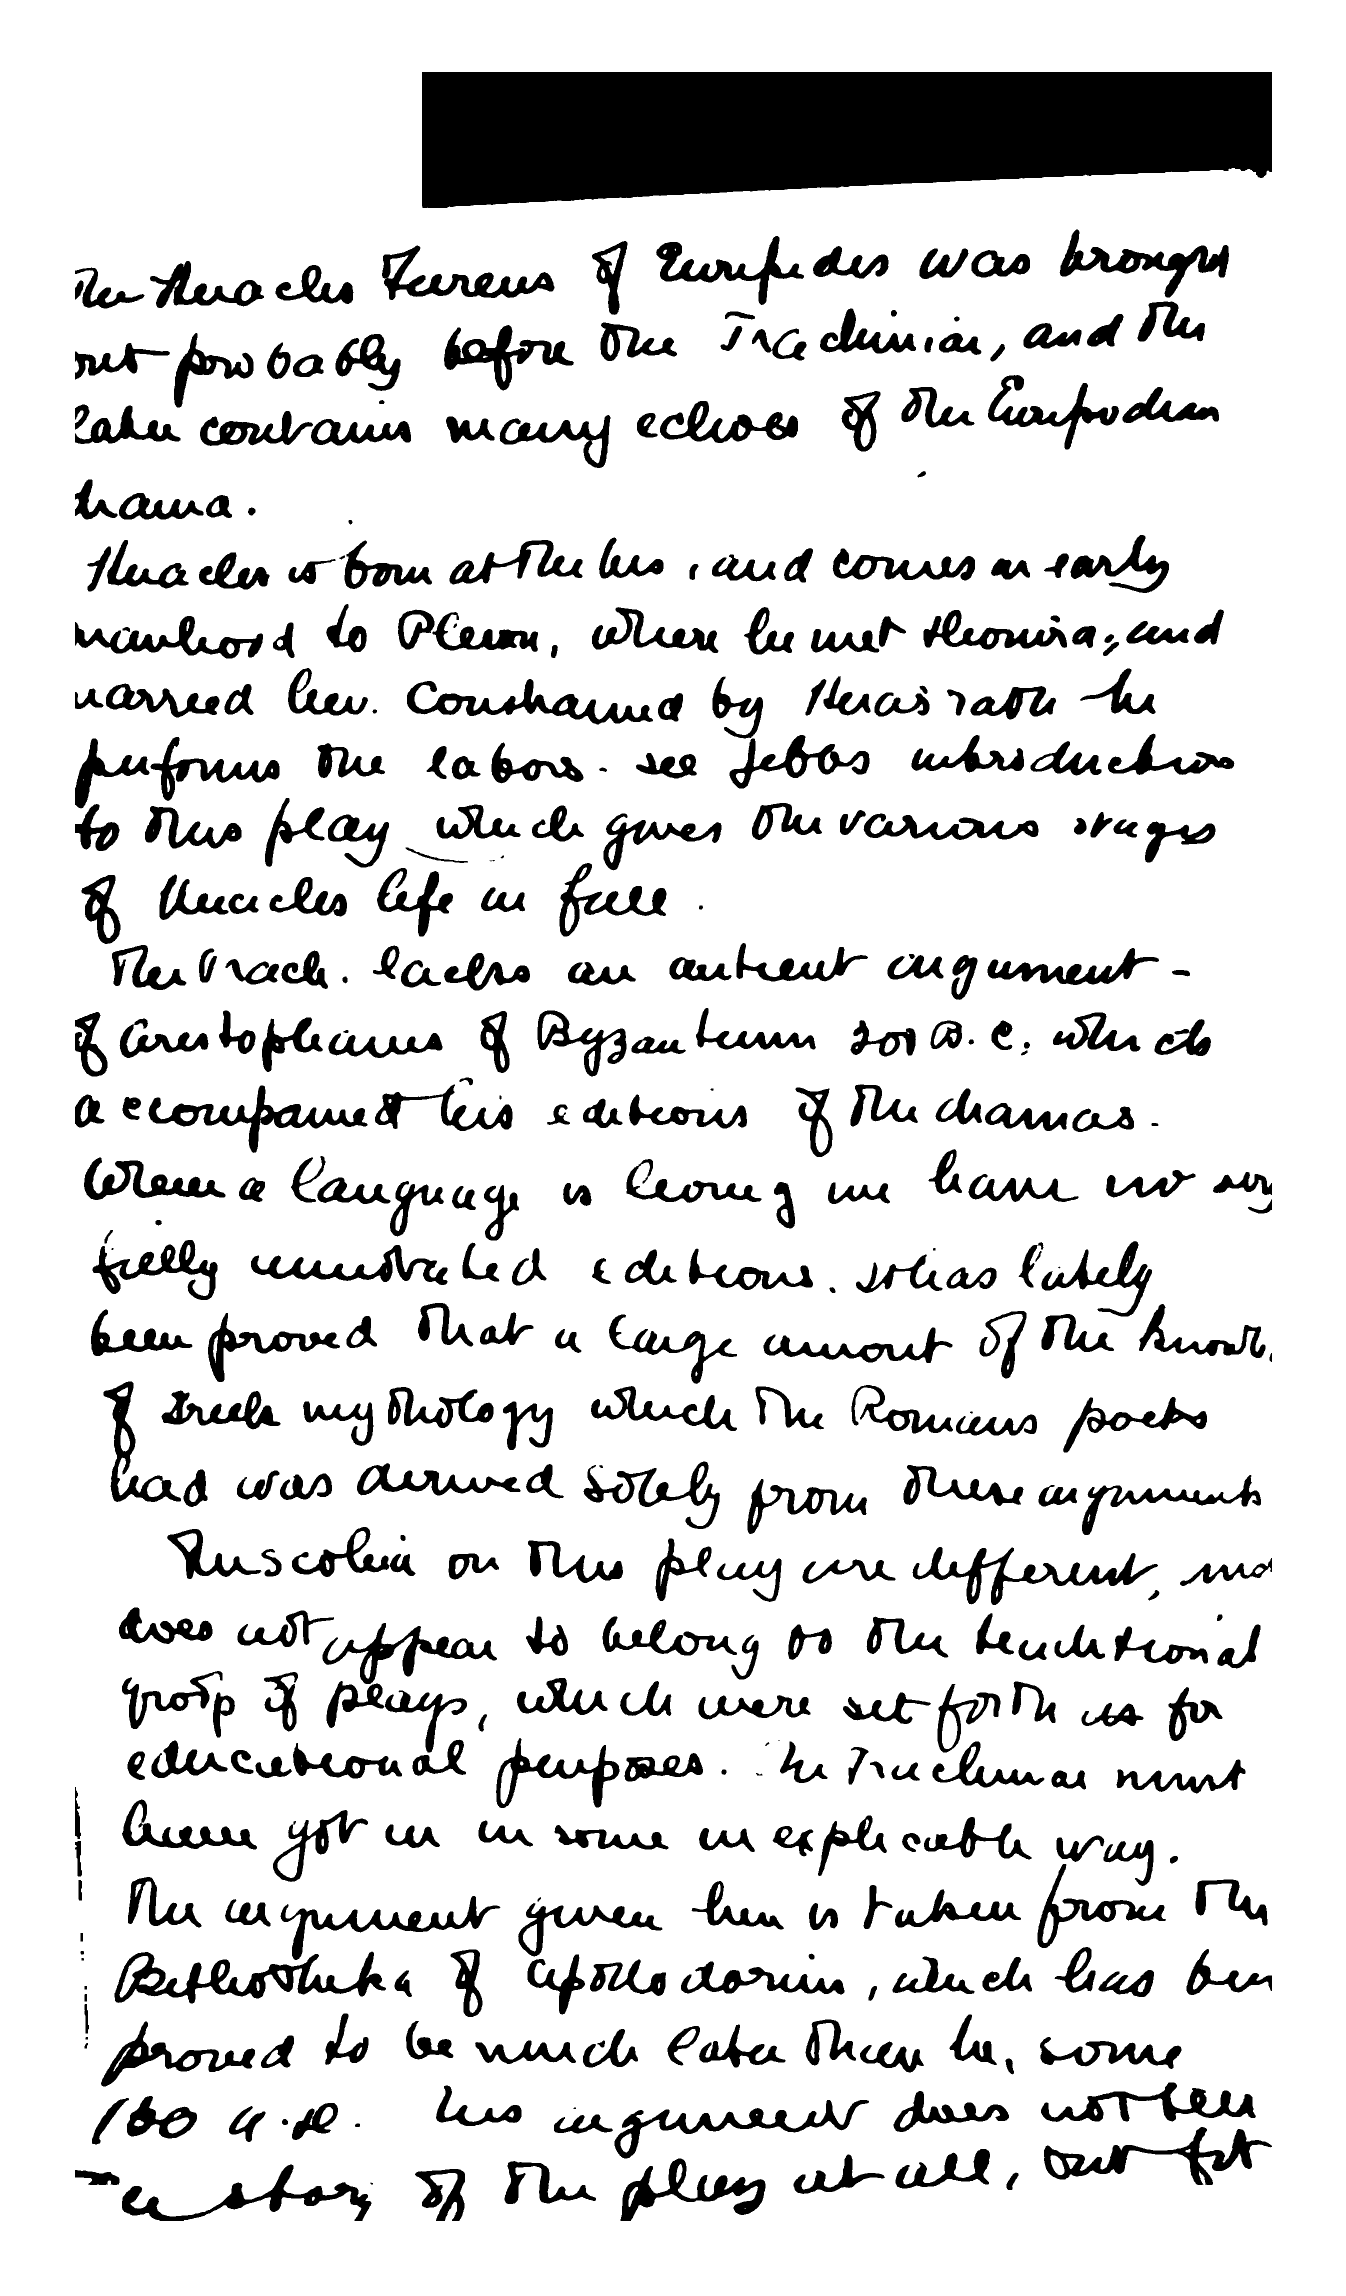 The Heracles Furens of Euripides was brought
out probably before the Trachiniai, and the
later contains many echoes of the Euripidean
drama.
Heracles is born at Thebes, and comes in early
manhood to Pleuron, where he met Deianira, and
married her. Constrained by Hera's wrath he
performs the labors. see Jebbs introduction
to this play which gives the various stages
of Heracles life in full.
The Trach. lacks an antient argument -
of Aristophanes of Byzantium 200 B.C. which
accompanied his editions of the dramas.
When a language is living we have no very
fully annotated editions. It has lately
been proved that a large amount of the
of Greek mythology which the Romans poets
had was derived solely from these arguments
The scolia on this play are different,
does not appear to belong to the traditional
group of plays, which were set forth as for
educational purposes. The Trachiniae must
have got in in some inexplicable way.
The argument given here is taken from the
Bibliotheka of Apollodorus, which has been
proved to be much later than he, some
A.D. his argument does not tell
story of the play at all, but